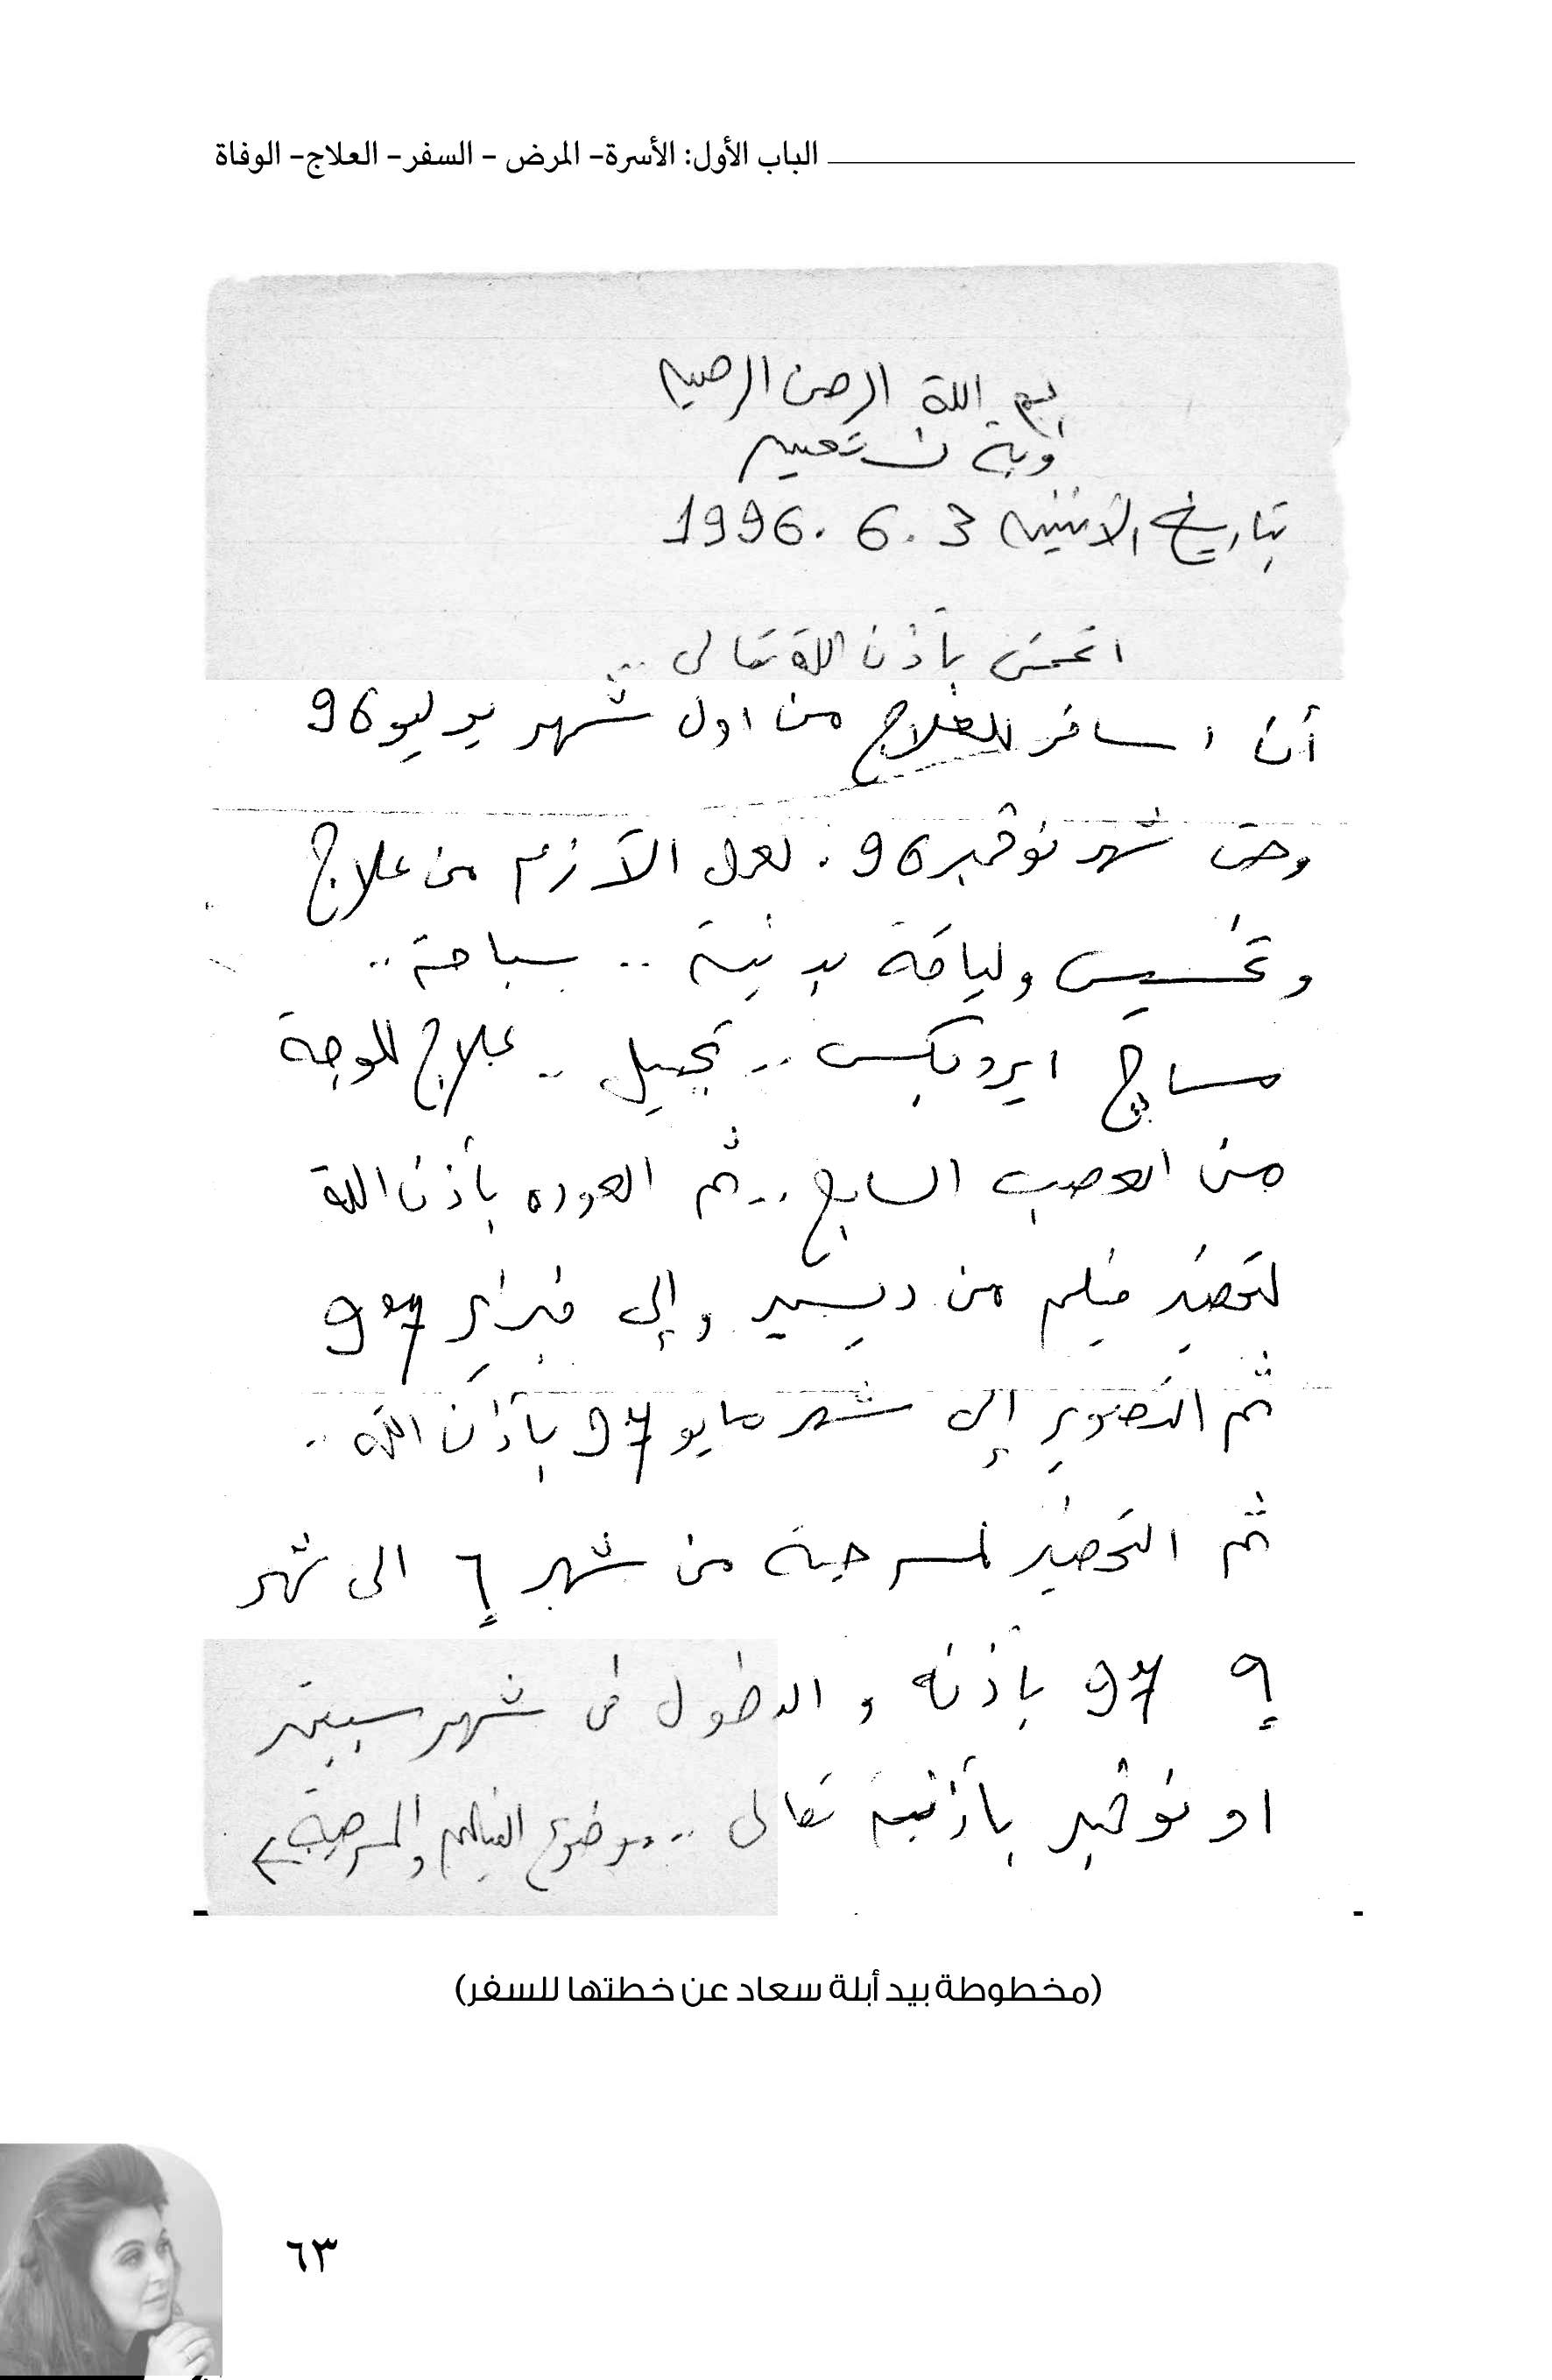 الباب الأول: الأسرة- المرض - السفر- العلاج- الوفاة
بسم اللة الرحمن الرحيم
وبة نستعين
بتاريخ الاثنين 3. 6. 1996
اتمنى بأذن اللة تعالى ..
أن اسافر للعلاج من اول شهر يوليو 96
وحتى شهر نوڤمبر 96. لعمل الآزم من علاج
وتخسيس ولياقة بدنية .. سباحة ..
مساچ ايروبكس .. تجميل .. علاج للوجة
من العصب السابع .. ثم العوده بأذن اللة
لتحضير فيلم من ديسمبر وإلى فبراير 97
ثم التصوير إلى شهر مايو 97 بأذن اللة ..
ثم التحضير لمسرحية من شهر ٦ الى شهر
٩ 97 بأذنه و الدخول فى شهر سبتمبر
او نوڤمبر بأذنة تعالى .. موضوع الفيلم والمسرحية
(مخطوطة بيد أبلة سعاد عن خطتها للسفر)
٦٣